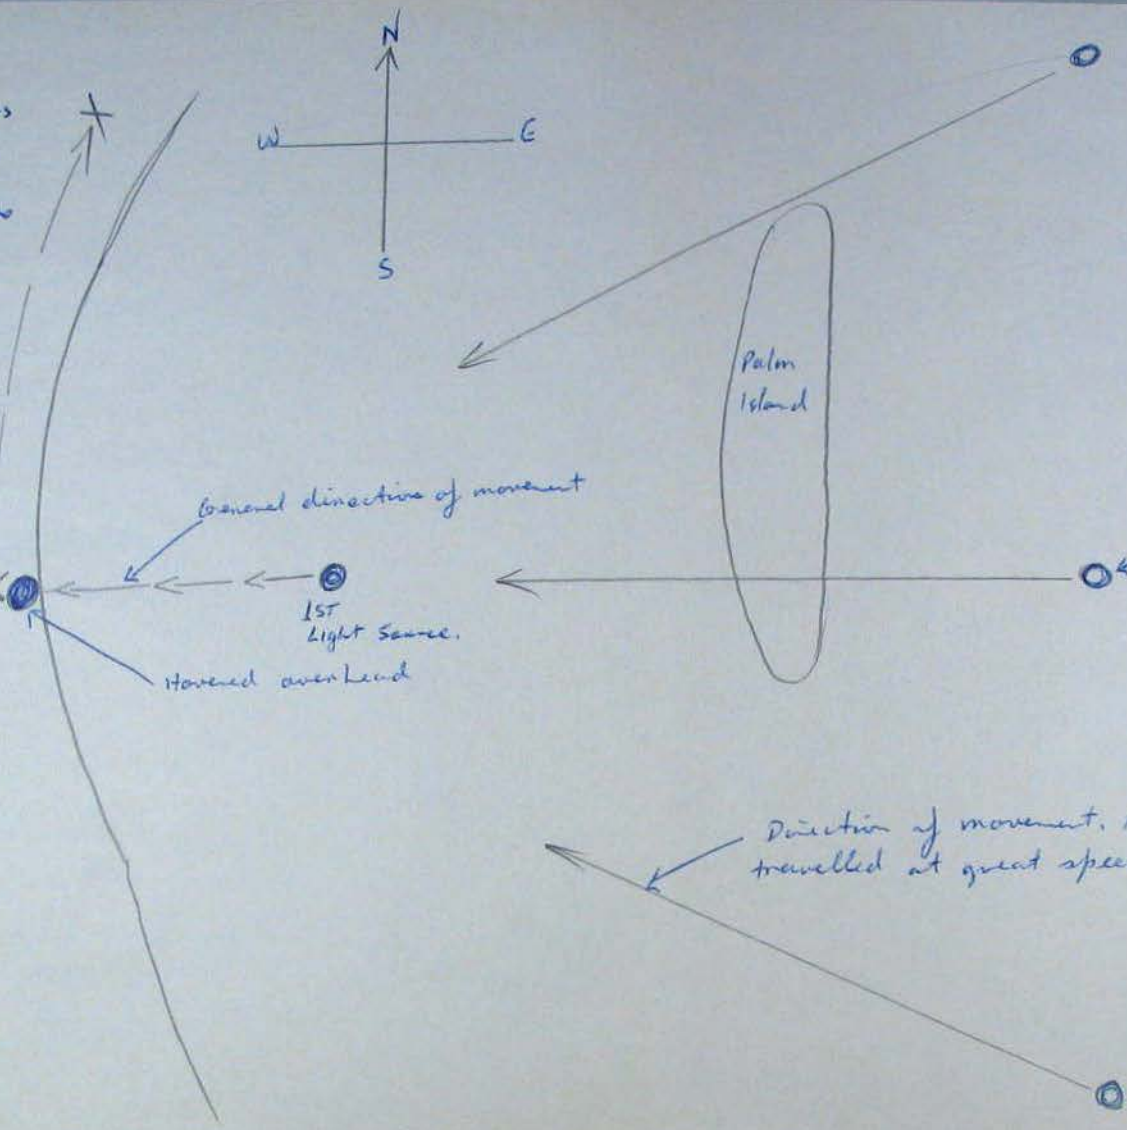 N
W E
S
Palm
Island
General direction of movement
1ST
Light Source.
Hovered overhead
Direction of movement.
travelled at great spee